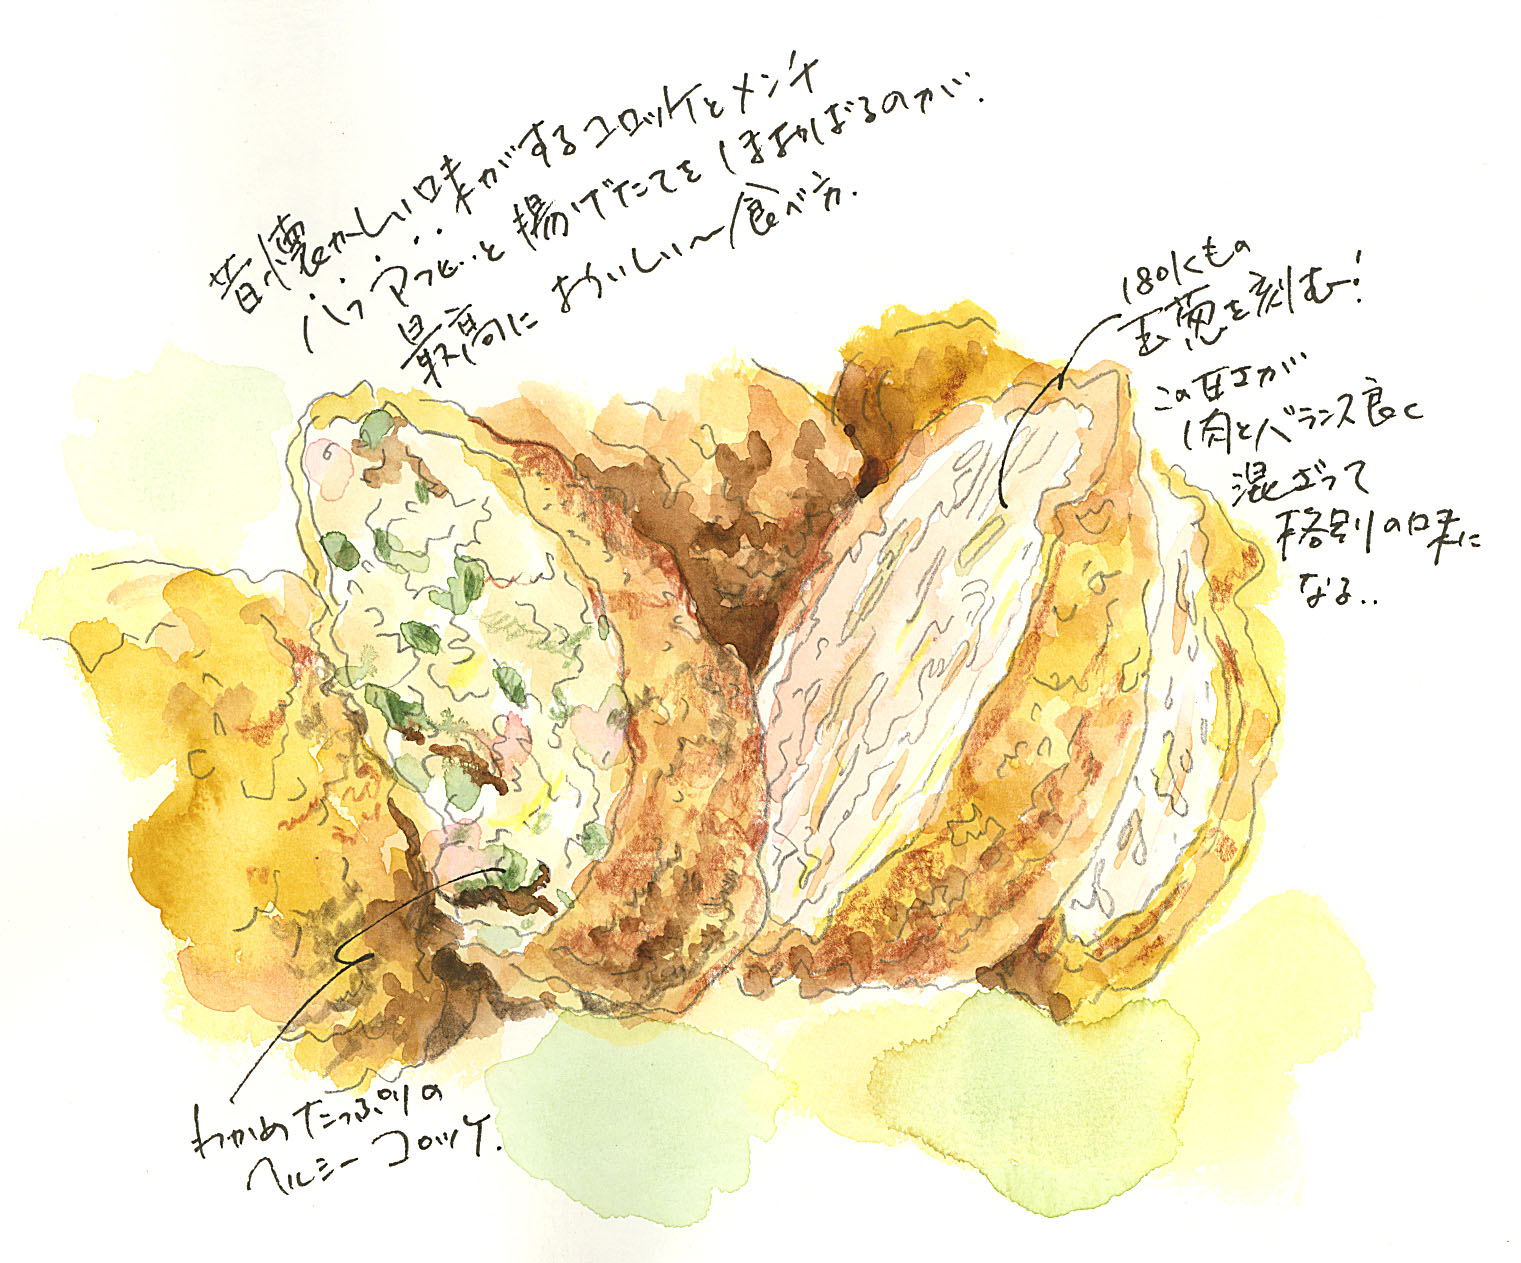 昔懐かしい味がするコロッケとメンチ
ハフ アフと‥と揚げたてをほおばるのが.
最高においしい〜食べ方.
180Kもの
玉葱を刻む!
この甘さが
肉とバランス良く
混ざって
格別の味に
なる..
わかめたっぷりの
ヘルシーコロッケ.